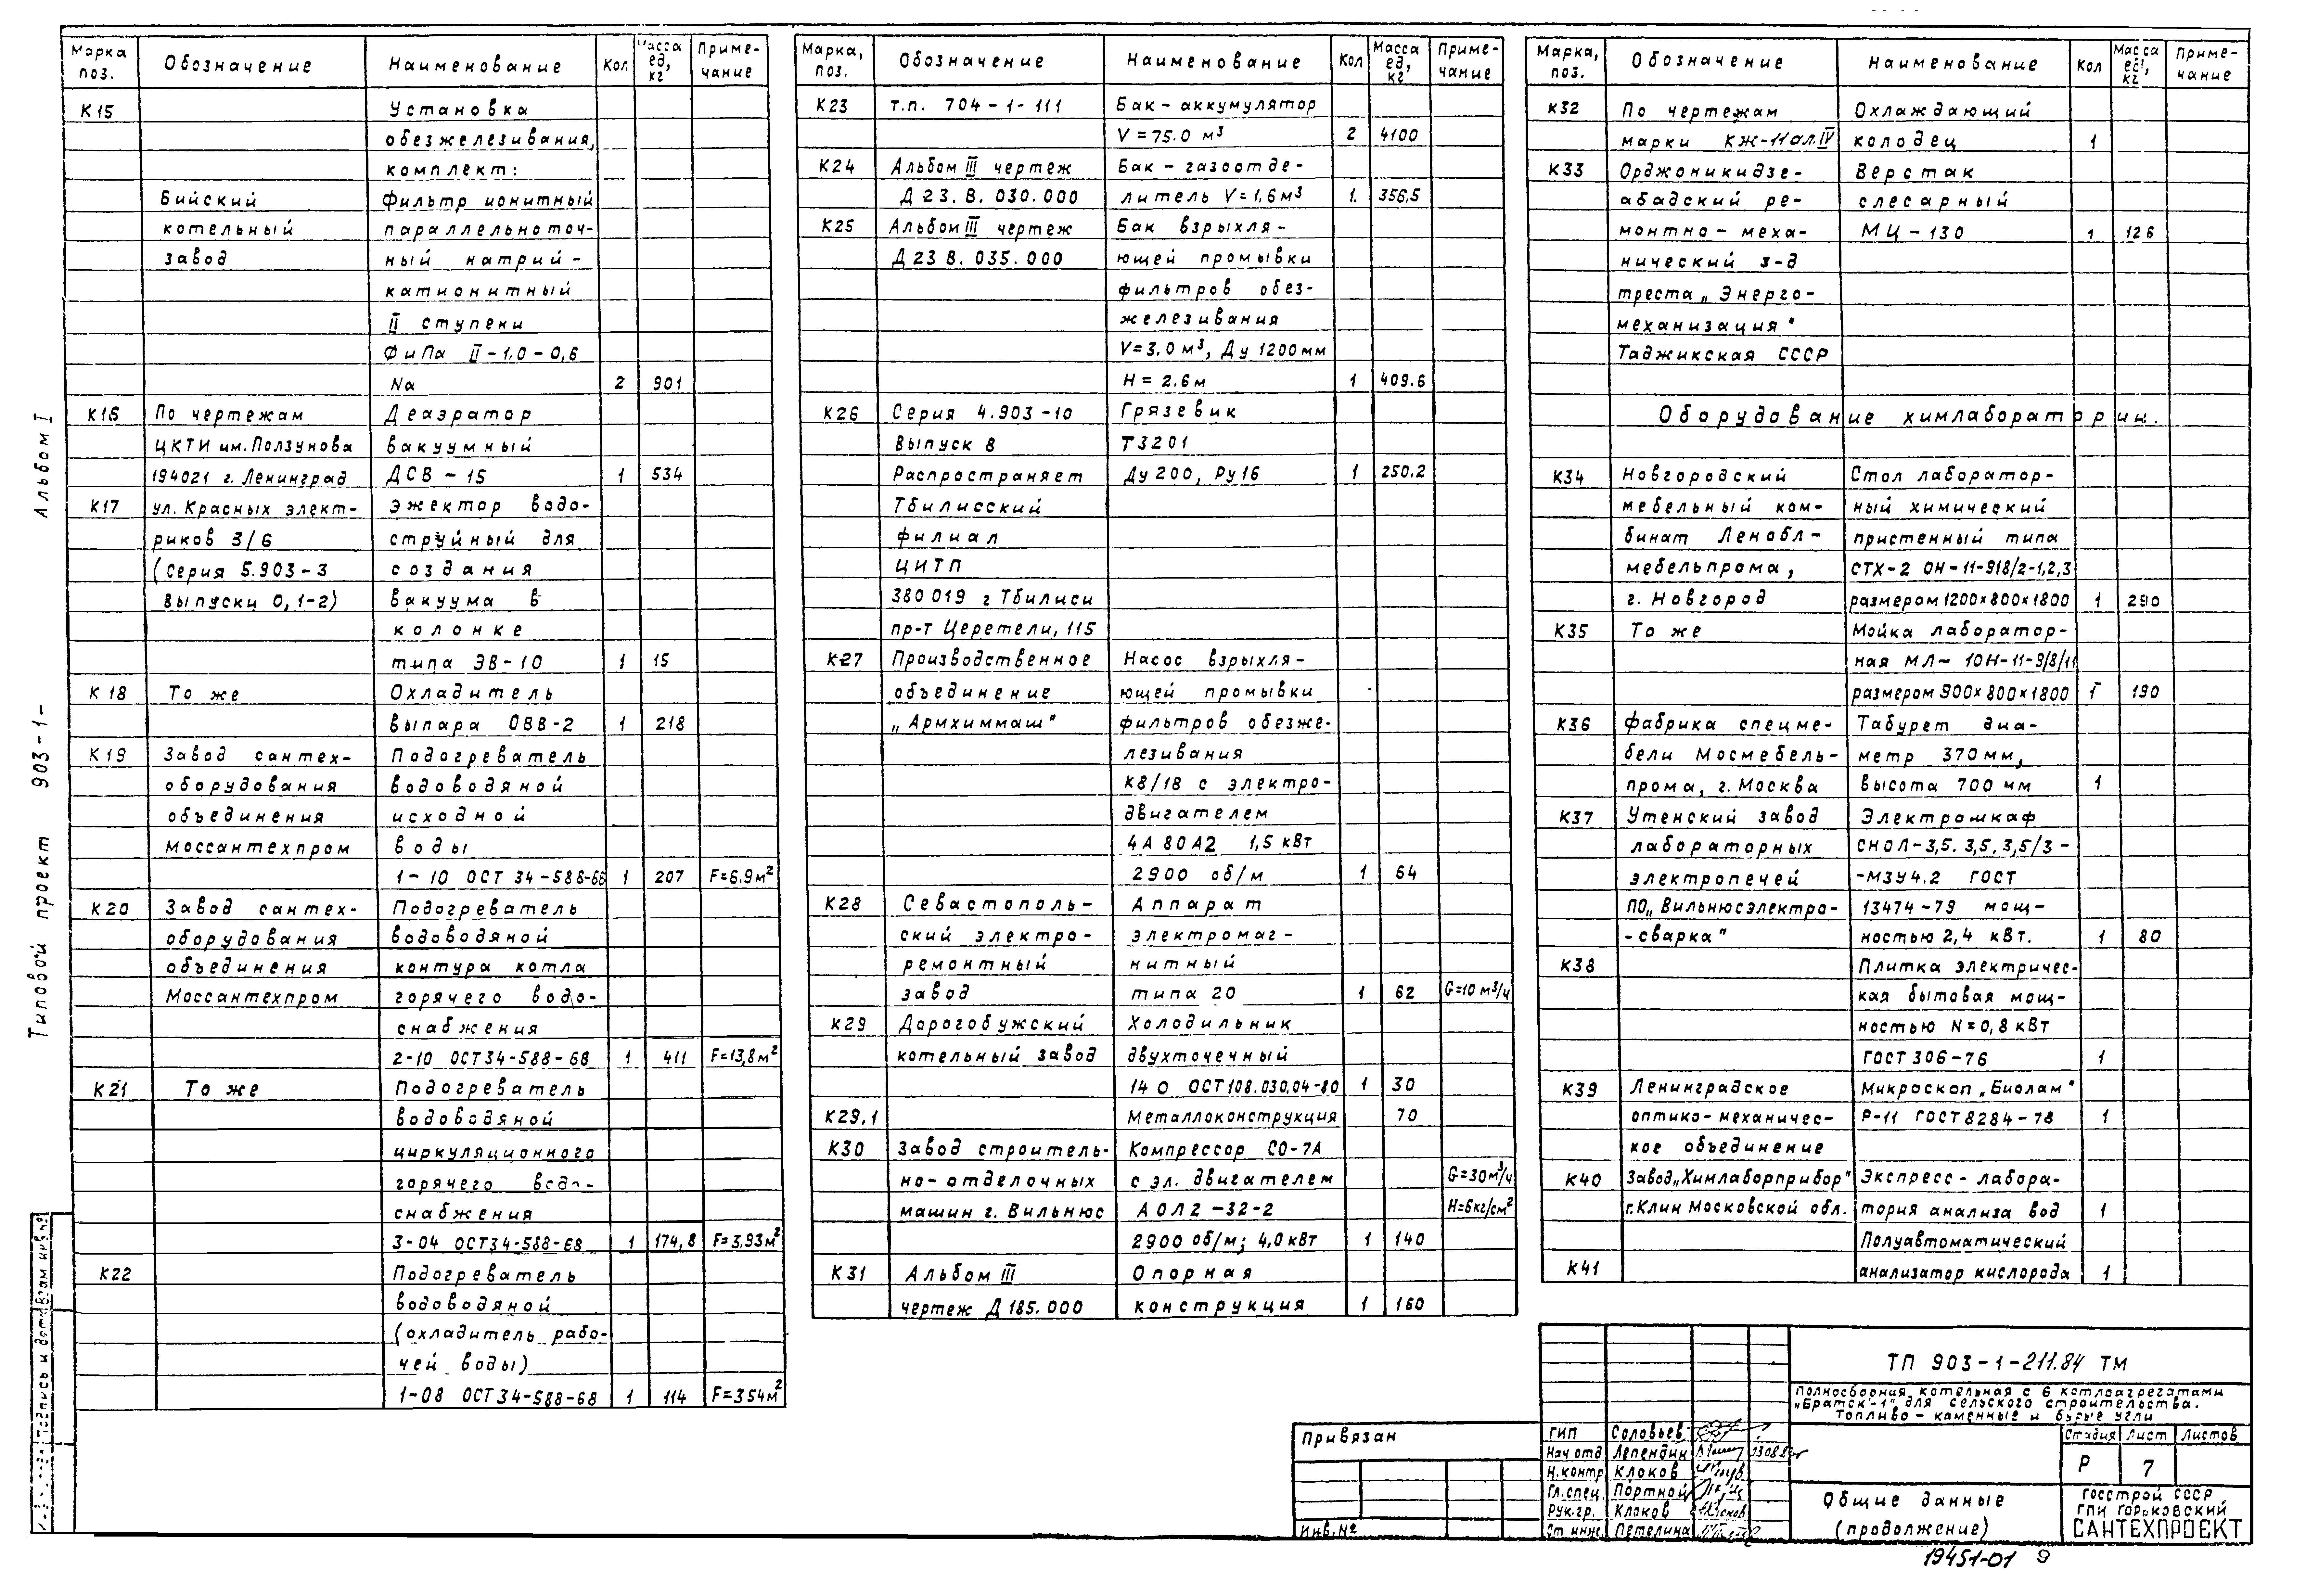 Марка поз. Обозначение Наименование Кол Масса ед, кг Приме-чание
К15 Установка
обезжелезивания,
комплект:
Бийский Фильтр ионитный
котельный параллельноточ-
завод ный натрий-
катионитный
II ступени
ФиПа II-1.0-0,6
Na 2 901
К16 По чертежам Деаэратор
ЦКТИ им. Ползунова вакуумный
194021 г. Ленинград ДСВ-15 1 534
К17 ул. Красных элект- Эжектор водо-
риков 3/6 струйный для
(Серия 5.903-3 создания
Выпуски 0,1-2) вакуума в
колонке
типа ЭВ-10 1 15
К18 То же Охладитель
выпара ОВВ-2 1 218
К19 Завод сантех- Подогреватель
оборудования водоводяной
объединения исходной
Моссантехпром воды
1-10 ОСТ 34-588-68 1 207 F=6.9м²
К20 Завод сантех- Подогреватель
оборудования водоводяной
объединения контура котла
Моссантехпром горячего водо-
снабжения
2-10 ОСТ34-588-68 1 411 F=13,8м²
К21 То же Подогреватель
водоводяной
циркуляционного
горячего водо-
снабжения
3-04 ОСТ34-588-68 1 174,8 F=3.93м²
К22 Подогреватель
водоводяной
(охладитель рабо-
чей воды)
1-08 ОСТ34-588-68 1 114 F=354м²
Марка, поз. Обозначение Наименование Кол Масса ед, кг Приме-чание
К23 т.п. 704-1-111 Бак-аккумулятор
V=75.0 м³ 2 4100
К24 Альбом III чертеж Бак-газоотде-
Д 23. В. 030.000 литель V=1,6м³ 1. 356,5
К25 Альбом III чертеж Бак взрыхля-
Д 23 В. 035.000 ющей промывки
фильтров обез-
железивания
V=3.0 м³, Ду 1200мм
H=2.6м 1 409.6
К26 Серия 4.903-10 Грязевик
Выпуск 8 Т3201
Распространяет Ду 200, Ру16 1 250.2
Тбилисский
филиал
ЦИТП
380019 г Тбилиси
пр-т Церетели, 115
К27 Производственное Насос взрыхля-
объединение ющей промывки
„Армхиммаш" фильтров обезже-
лезивания
К8/18 с электро-
двигателем
4А80А2 1,5 кВт
2900 об/м 1 64
К28 Севастополь- Аппарат
ский электро- электромаг-
ремонтный нитный
завод типа 20 1 62 G=10 м³/ч
К29 Дорогобужский Холодильник
котельный завод двухточечный
14 0 ОСТ108.030.04-80 1 30
К29.1 Металлоконструкция 70
К30 Завод строитель- Компрессор СО-7А
но-отделочных с эл. двигателем G=30м³/ч
машин г. Вильнюс АОЛ2-32-2 H=6кг/см²
2900 об/м; 4,0кВт 1 140
К31 Альбом III Опорная
чертеж Д 185.000 конструкция 1 160
Марка, поз. Обозначение Наименование Кол Масса ед, кг Приме-чание
К32 По чертежам Охлаждающий
марки КЖ-11 ал. IV колодец 1
К33 Орджоникидзе- Верстак
абадский ре- слесарный
монтно-меха- МЦ-130 1 126
нический з-д
треста „Энерго-
механизация"
Таджикская ССР
Оборудование химлаборатории.
К34 Новгородский Стол лаборатор-
мебельный ком- ный химический
бинат Ленобл- пристенный типа
мебельпрома, СТХ-2 ОН-11-918/2-1,2,3
г. Новгород размером 1200×800×1800 1 290
К35 То же Мойка лаборатор-
ная МЛ- 10Н-11-9/8/11
размером 900×800×1800 1 190
К36 Фабрика спецме- Табурет диа-
бели Мосмебель- метр 370мм,
прома, г. Москва высота 700 мм 1
К37 Утенский завод Электрошкаф
лабораторных СНОЛ-3,5. 3,5. 3,5/3-
электропечей -М3У4.2 ГОСТ
ПО„Вильнюсэлектро- 13474-79 мощ-
-сварка" ностью 2,4 кВт. 1 80
К38 Плитка электричес-
кая бытовая мощ-
ностью N=0,8 кВт
ГОСТ 306-76 1
К39 Ленинградское Микроскоп „Биолам"
оптико-механичес- Р-11 ГОСТ 8284-78 1
кое объединение
К40 Завод„Химлаборприбор" Экспресс-лабора-
г.Клин Московской обл. тория анализа вод 1
Полуавтоматический
К41 анализатор кислорода 1
Альбом I
Типовой проект 903-1-
Подпись и дата Взам инв №
ТП 903-1-211.84 ТМ
Полносборная котельная с 6 котлоагрегатами
„Братск-1" для сельского строительства.
Топливо-каменные и бурые угли
Привязан
Инв. №
ГИП Соловьев
Нач отд Лепендин
Н.контр Клоков
Гл.спец. Портной
Рук.гр. Клоков
Ст инж. Петелина
Стадия Лист Листов
Р 7
Общие данные
(продолжение)
Госстрой СССР
ГПИ Горьковский
САНТЕХПРОЕКТ
19451-01 9